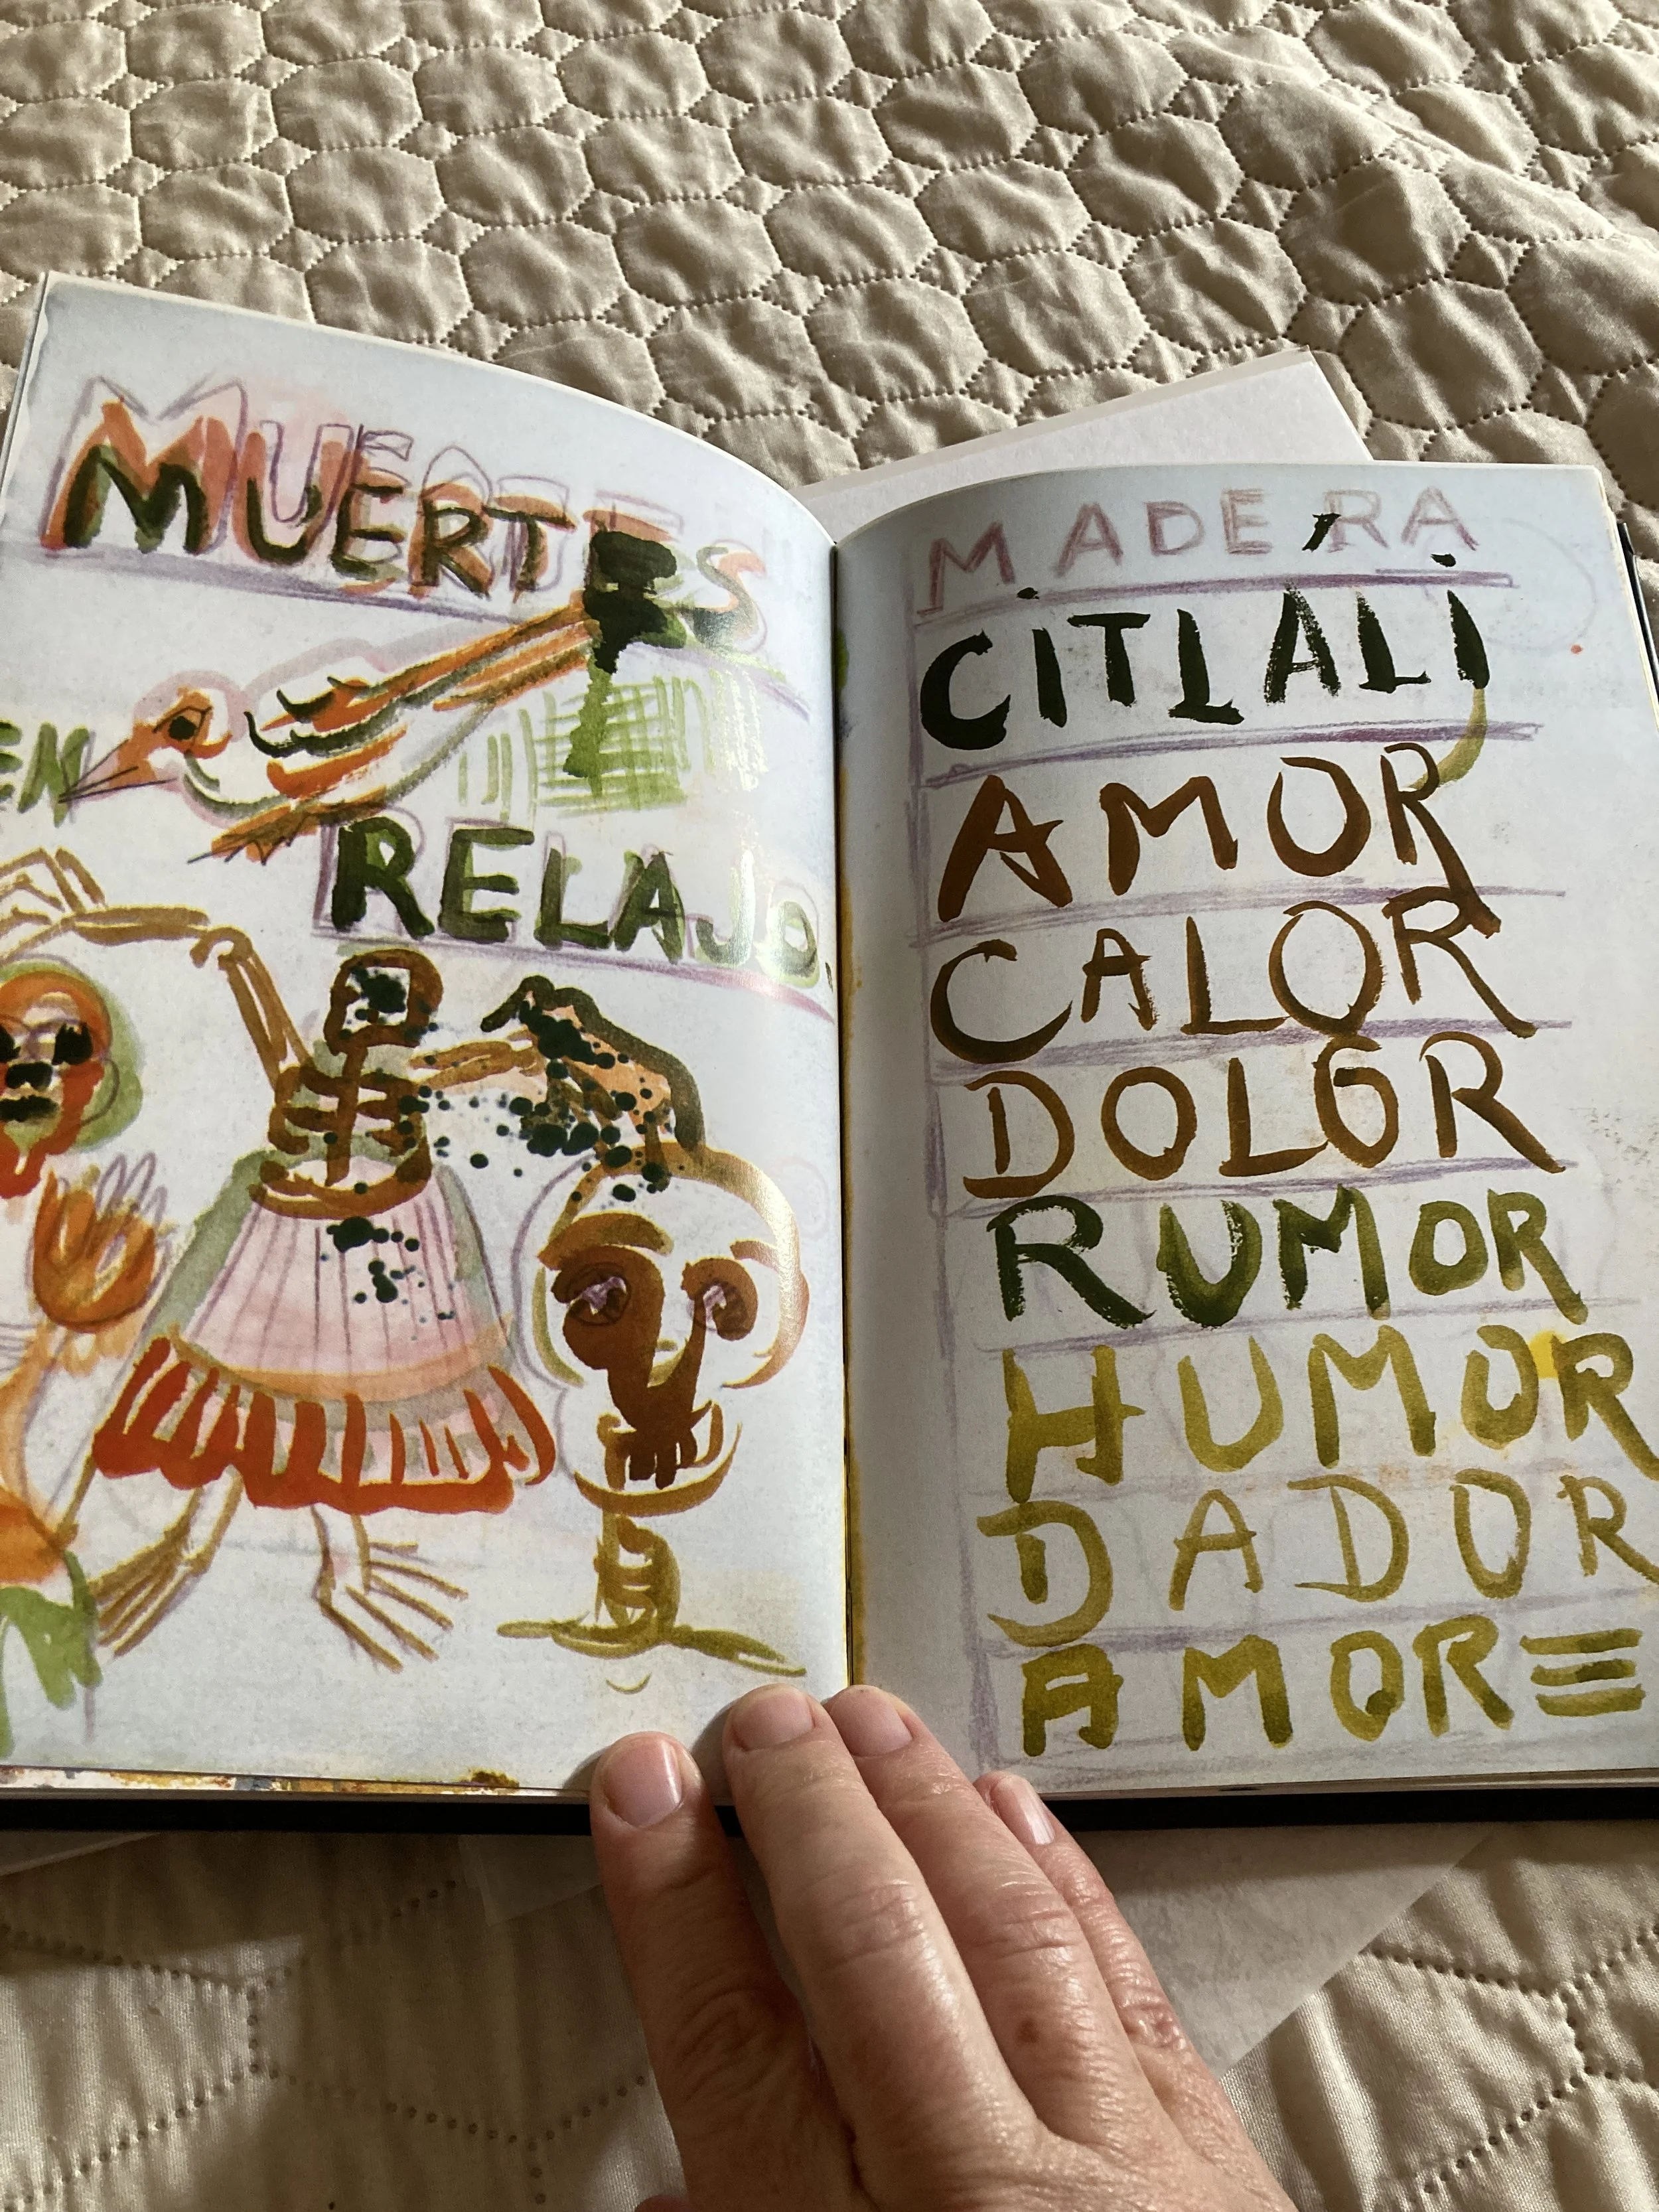 MUERTES
EN
RELAJO.
MADERA
CiTLALi
AMOR
CALOR
DOLOR
RUMOR
HUMOR
DADOR
AMORE